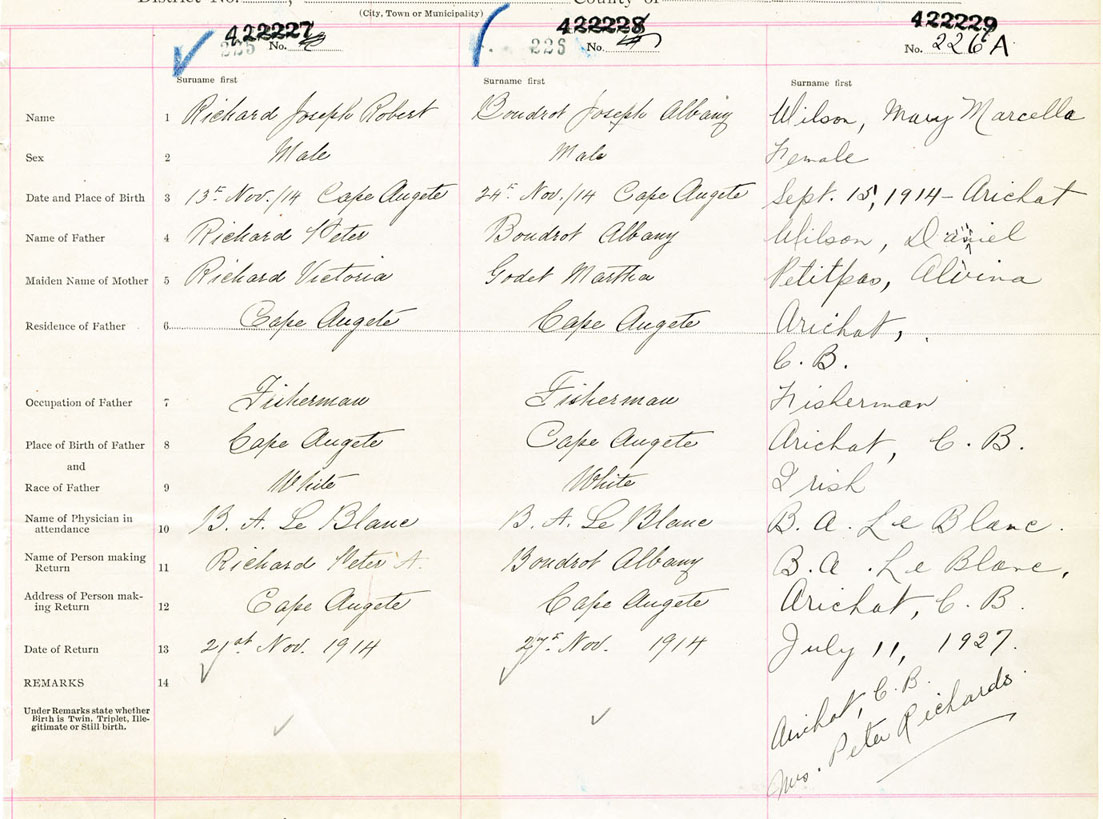 District No. , County of
(City, Town or Municipality)
422227 422228 422229
225 No. 226 No. No. 226A
Surname first Surname first Surname first
Name 1 Richard Joseph Robert Boudrot Joseph Albany Wilson, Mary Marcella
Sex 2 Male Male Female
Date and Place of Birth 3 13th Nov./14 Cape Augete 24th Nov./14 Cape Augete Sept. 15, 1914 - Arichat
Name of Father 4 Richard Peter Boudrot Albany Wilson, Daniel
Maiden Name of Mother 5 Richard Victoria Godet Martha Petitpas, Alvina
Residence of Father 6 Cape Augete Cape Augete Arichat,
C. B.
Occupation of Father 7 Fisherman Fisherman Fisherman
Place of Birth of Father 8 Cape Augete Cape Augete Arichat, C. B.
and
Race of Father 9 White White Irish
Name of Physician in
attendance 10 B. A. Le Blanc B. A. Le Blanc B. A. Le Blanc.
Name of Person making
Return 11 Richard Peter A. Boudrot Albany B. A. Le Blanc,
Address of Person mak-
ing Return 12 Cape Augete Cape Augete Arichat, C. B.
Date of Return 13 21st Nov. 1914 27th Nov. 1914 July 11, 1927.
REMARKS 14
Under Remarks state whether
Birth is Twin, Triplet, Ille-
gitimate or Still birth.
Arichat, C. B.
Mrs. Peter Richards.